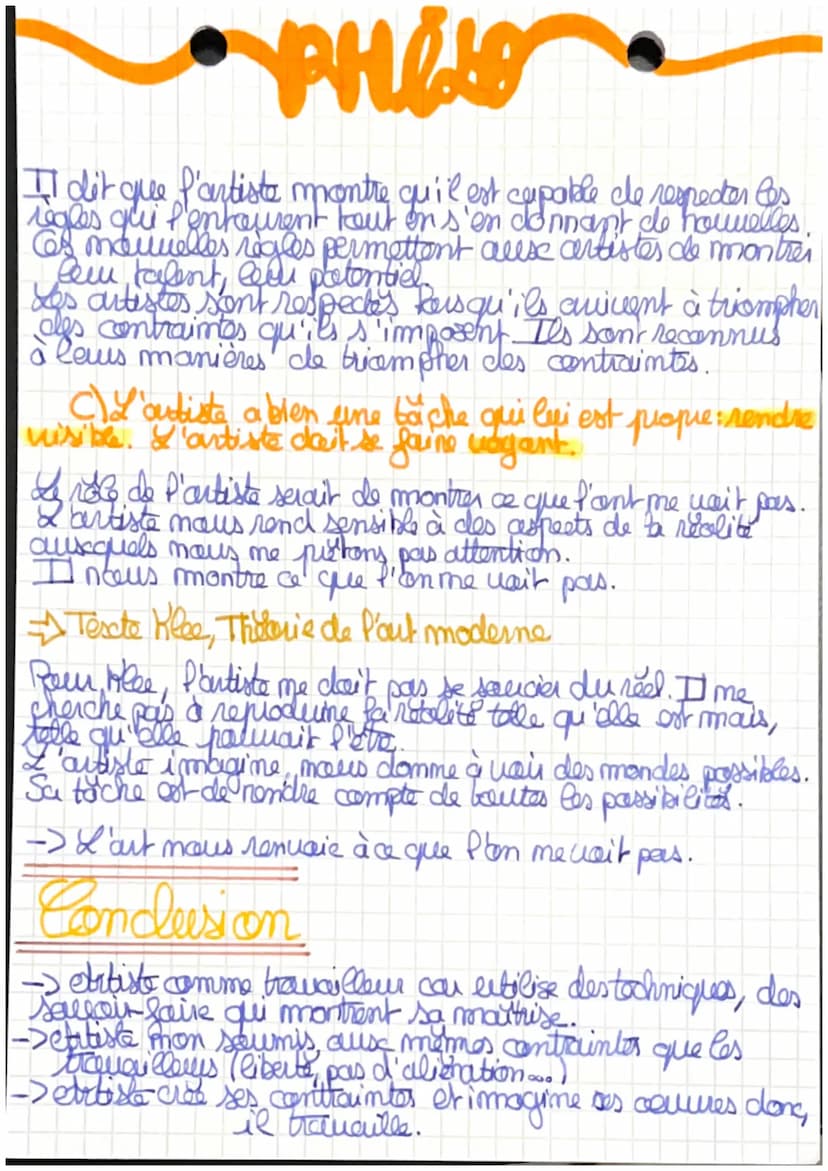 PHILO
Il dit que l'artiste montre qu'il est capable de respecter les
règles qui l'entourent tout en s'en donnant de nouvelles.
Ces nouvelles règles permettent aux artistes de montrer
leur talent, leur potentiel.
Les artistes sont respectés lorsqu'ils arrivent à triompher
des contraintes qu'ils s'imposent. Ils sont reconnus
à leurs manières de triompher des contraintes.
C) L'artiste a bien une tâche qui lui est propre : rendre
visible. L'artiste doit se faire voyant.
Le rôle de l'artiste serait de montrer ce que l'ont ne voit pas.
L'artiste nous rend sensible à des aspects de la réalité
auxquels nous ne prêtons pas attention.
Il nous montre ce que l'on ne voit pas.
=> Texte Klee, Théorie de l'art moderne
Pour Klee, l'artiste ne doit pas se soucier du réel. Il ne
cherche pas à reproduire la réalité telle qu'elle est mais,
telle qu'elle pouvait l'être.
L'artiste imagine, nous donne à voir des mondes possibles.
Sa tâche est de rendre compte de toutes les possibilités.
-> L'art nous renvoie à ce que l'on ne voit pas.
Conclusion
-> artiste comme travailleur car utilise des techniques, des
savoir-faire qui montrent sa maîtrise.
-> artiste non soumis aux mêmes contraintes que les
travailleurs (liberté, pas d'aliénation...)
-> artiste crée ses contraintes et imagine ses œuvres donc,
il travaille.